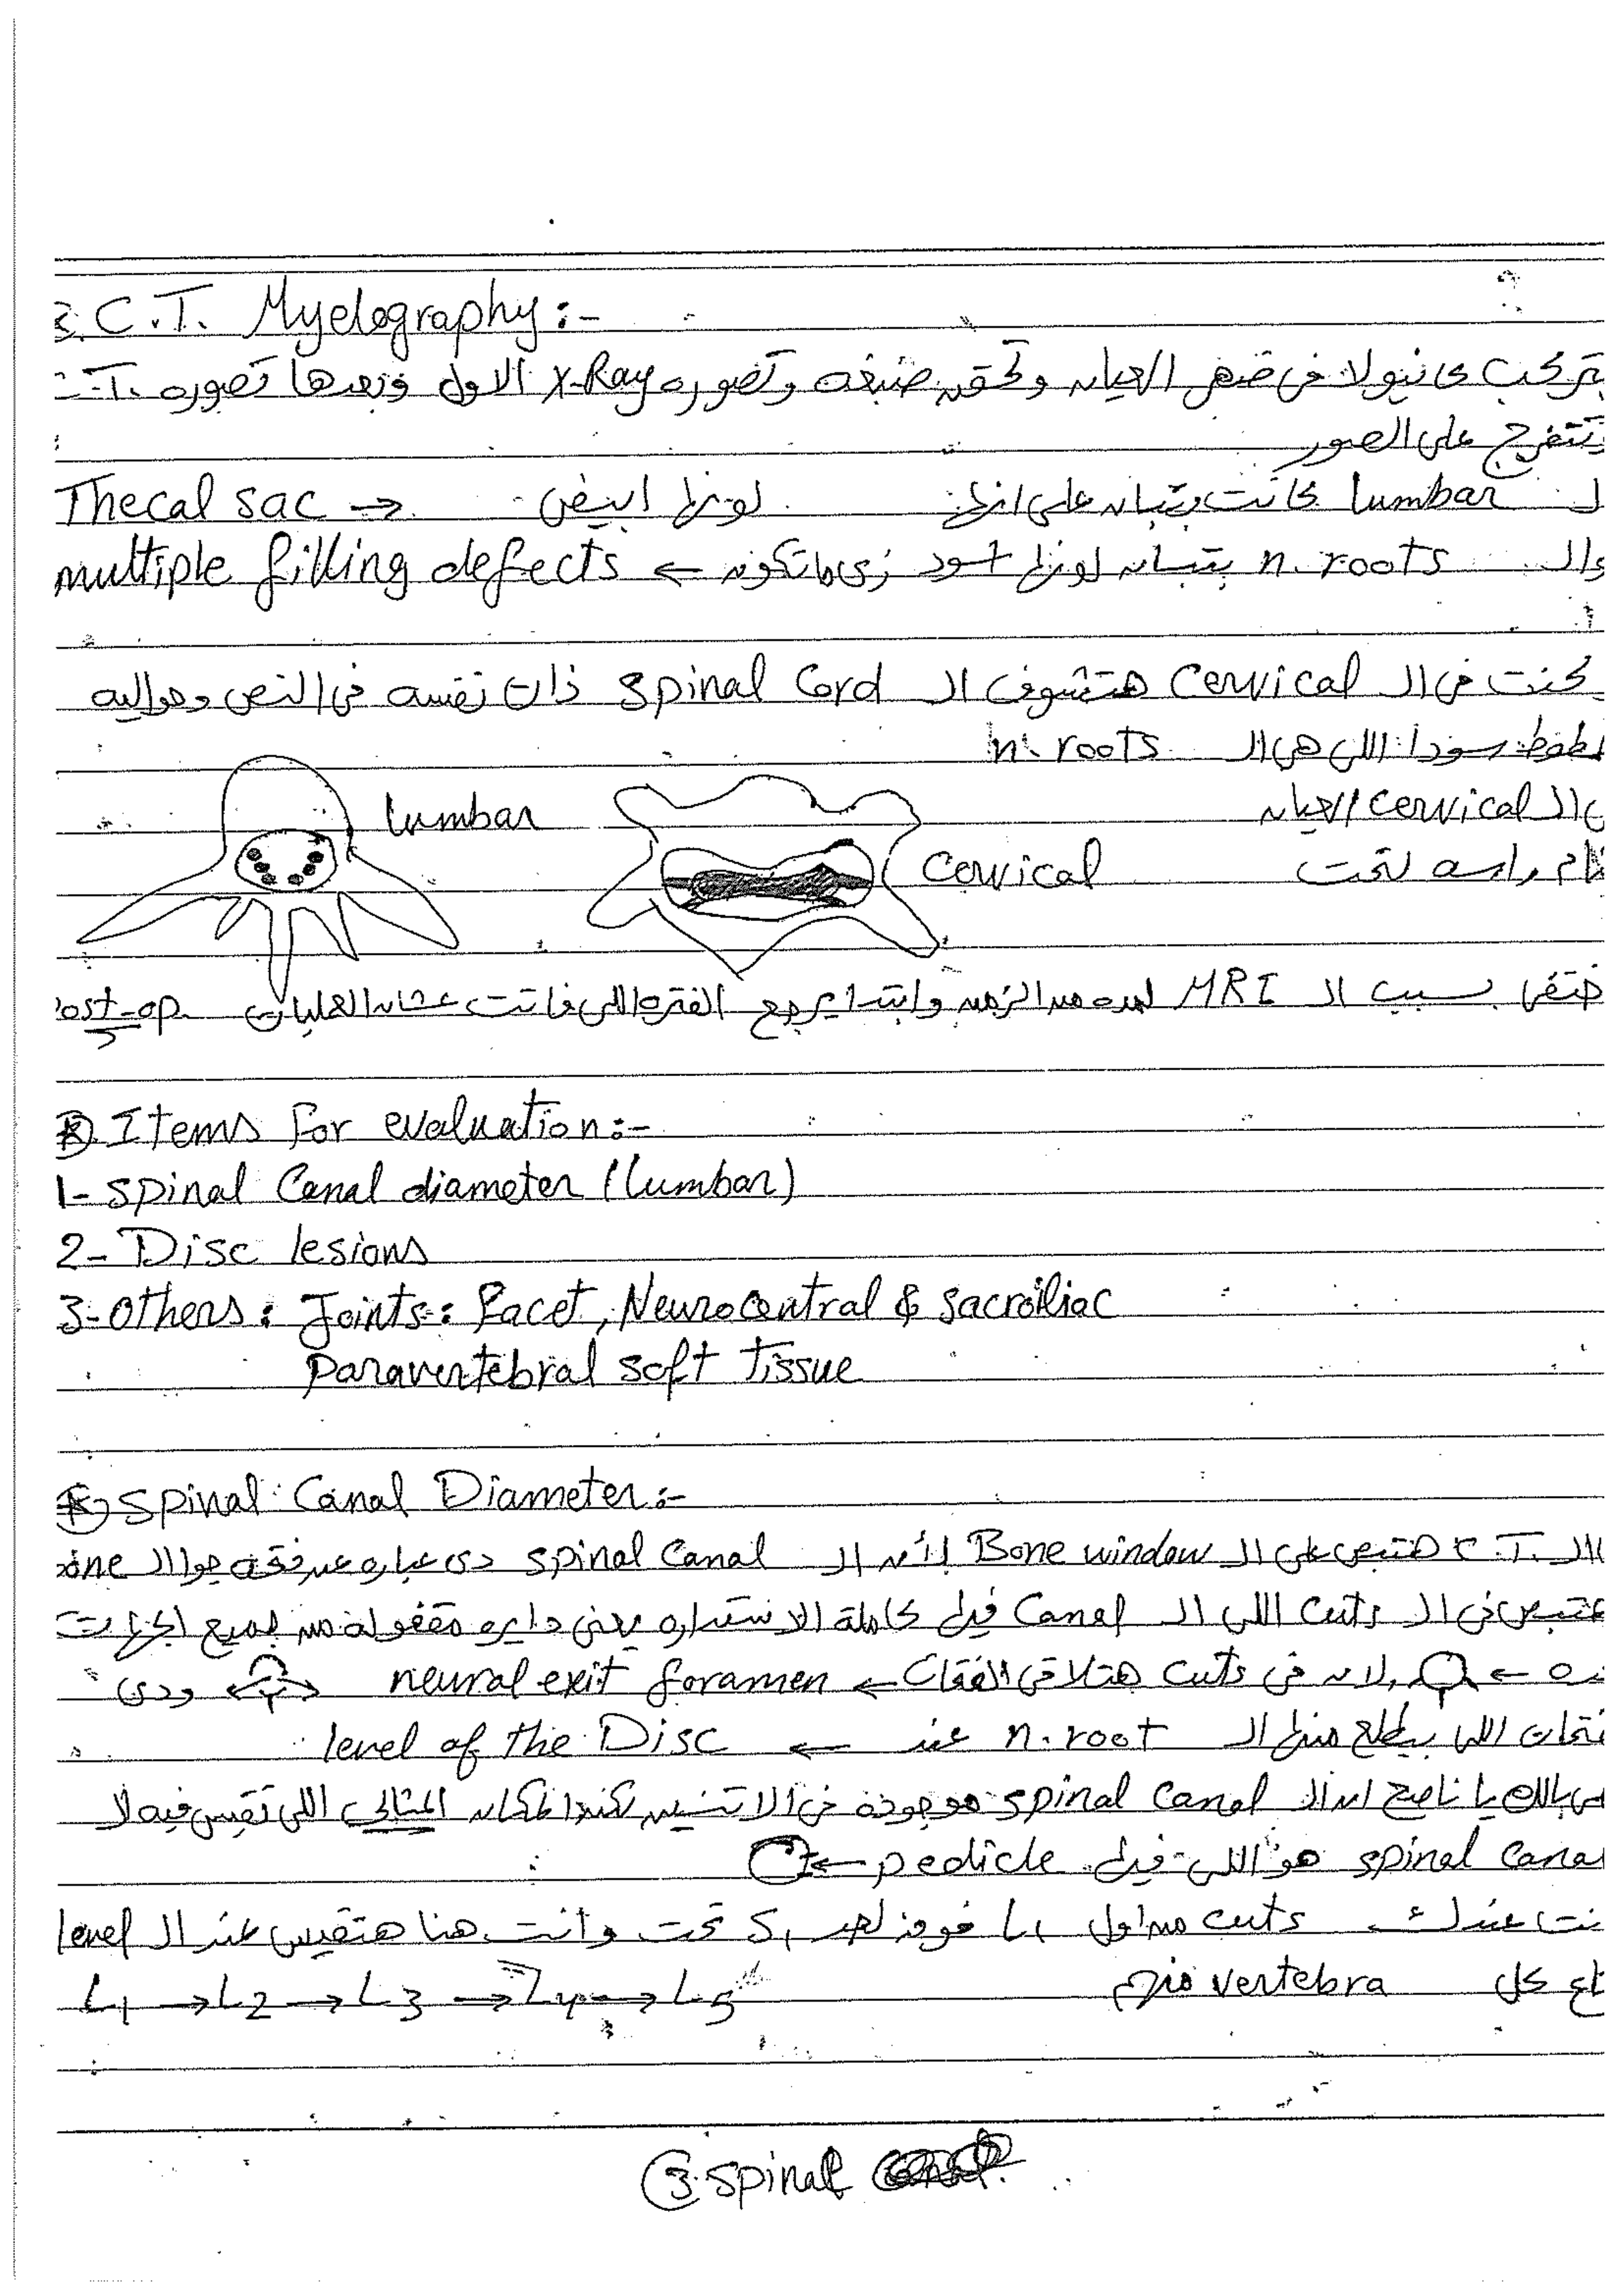 C.T. Myelography:-
بتركب كانيولا فى ضهر العيان وتحقن صبغه وتصوره X-Ray الاول وبعدها تصوره C.T.
تتفرج على الصور
ال lumbar كانت بتبان على انها لونها ابيض → Thecal sac
وال n. roots بتبان لونها اسود زى ماتكون ← multiple filling defects
لكنت فى ال Cervical هتشوف ال Spinal Cord ذات نفسه فى النص وحواليه
خطوط سودا اللى هى ال n. roots
lumbar
فى ال Cervical العيان
Cervical
نام راسه لتحت
اختفى بسبب ال MRI لمده من الزمن وابتدا يرجع الفتره اللى فاتت عشان العمليات post-op
Items for evaluation:-
1- Spinal Canal diameter (lumbar)
2- Disc lesions
3- Others: Joints: Facet, Neurocentral & Sacroiliac
Paravertebral soft tissue
Spinal Canal Diameter:-
ال C.T. هتبص على ال Bone window لأن ال Spinal Canal دى عباره عن نفق جوا ال Bone
هتبص فى ال cuts اللى ال Canal فيها كاملة الاستداره يعنى دايره مقفوله من جميع الجهات
← لان فى cuts هتلاقى الفتحات ← neural exit foramen ودى
الفتحات اللى بيطلع منها ال n. root عند ← level of the Disc
بالك يا ناصح ان ال Spinal Canal موجودة فى الاتنين لكن المكان المثالى اللى تقيس فيه ال
Spinal Canal هو اللى فيها pedicle ←
انت عندك cuts من اول L1 فوق لحد S1 تحت وانت هنا هتقيس عند ال level
بتاع كل vertebra منهم L1 → L2 → L3 → L4 → L5
3 Spinal